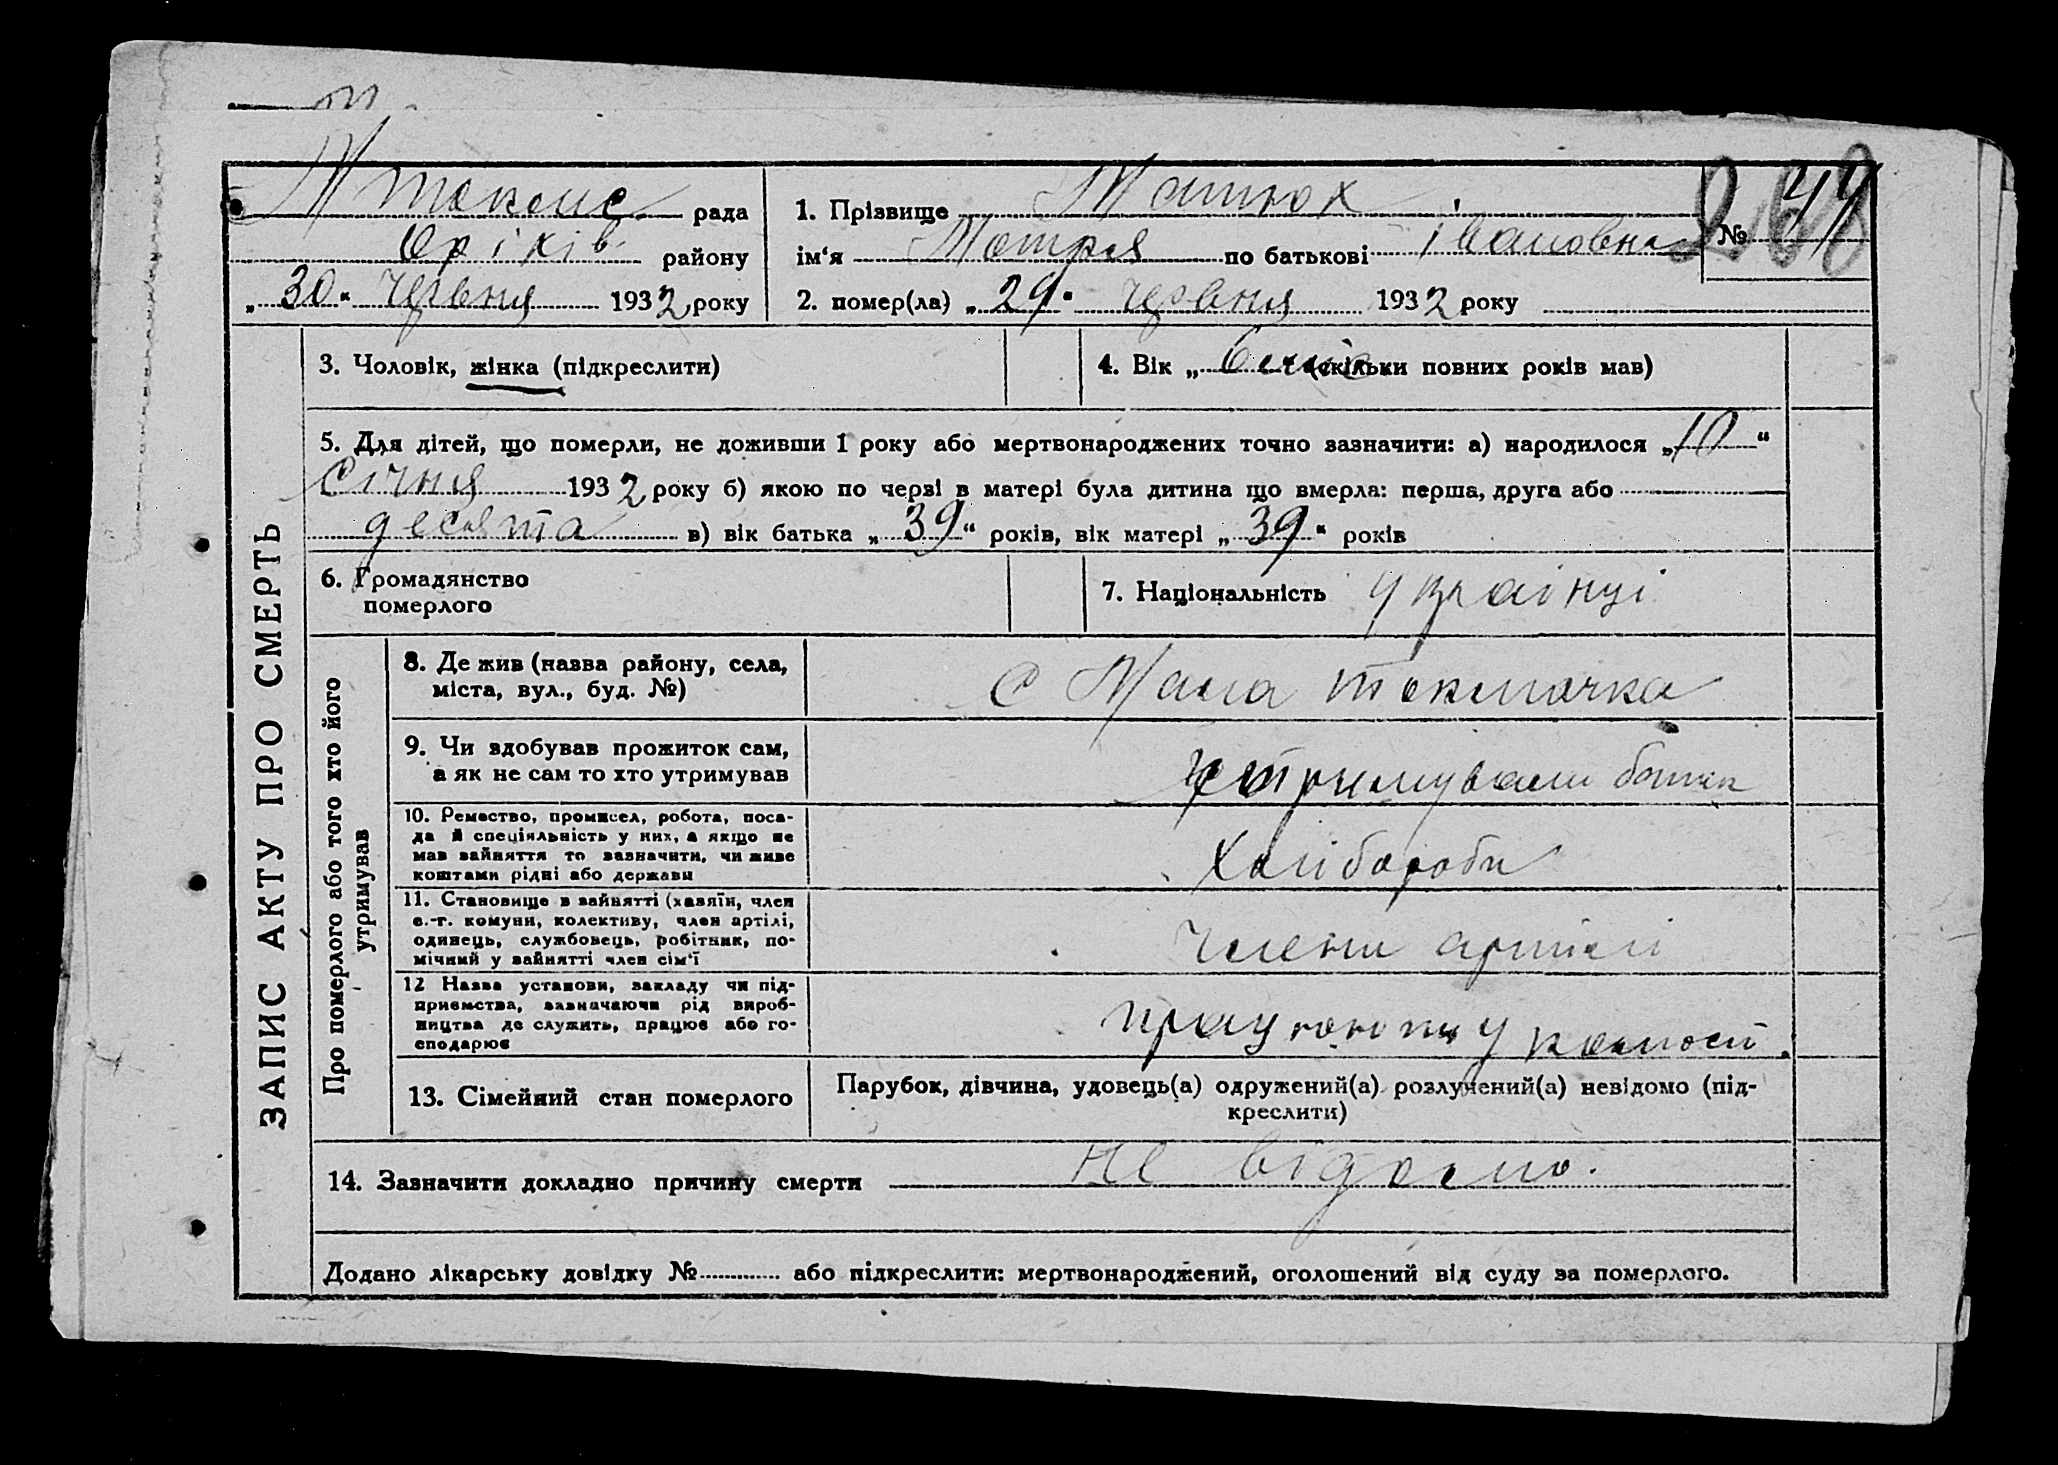 М Токмс. рада
Оріхів. району
„30“ Червня 1932 року
1. Прізвище Матюх
№ 44
ім‘я Мотря по батькові Івановна
2. помер(ла) „29“ Червня 1932 року
ЗАПИС АКТУ ПРО СМЕРТЬ
3. Чоловік, жінка (підкреслити)
4. Вік „ 6 міс. “ (скільки повних років мав)
5. Для дітей, що померли, не доживши 1 року або мертвонароджених точно зазначити: а) народилося „10“
Січня 1932 року б) якою по черві в матері була дитина що вмерла: перша, друга або
десята в) вік батька „39“ років, вік матері „39“ років
6. Громадянство
померлого
7. Національність українці
Про померлого або того хто його
утримував
8. Де жив (назва району, села,
міста, вул., буд. №)
с Мала Токмачка
9. Чи здобував прожиток сам,
а як не сам то хто утримував
утримували батьки
10. Ремество, промисел, робота, поса-
да й спеціяльність у них, а якщо не
мав зайняття то зазначити, чи живе
коштами рідні або держави
Хліборобы
11. Становище в зайнятті (хазяїн, член
с.-г. комуни, колективу, член артілі,
одинець, службовець, робітник, по-
мічний у зайнятті член сім‘ї
члени артілі
12 Назва установи, закладу чи під-
приємства, зазначаючи рід вироб-
ництва де служить, працює або го-
сподарює
працюють у колгоспі.
13. Сімейний стан померлого
Парубок, дівчина, удовець(а) одружений(а) розлучений(а) невідомо (під-
креслити)
14. Зазначити докладно причину смерти не відомо.
Додано лікарську довідку № або підкреслити: мертвонароджений, оголошений від суду за померлого.